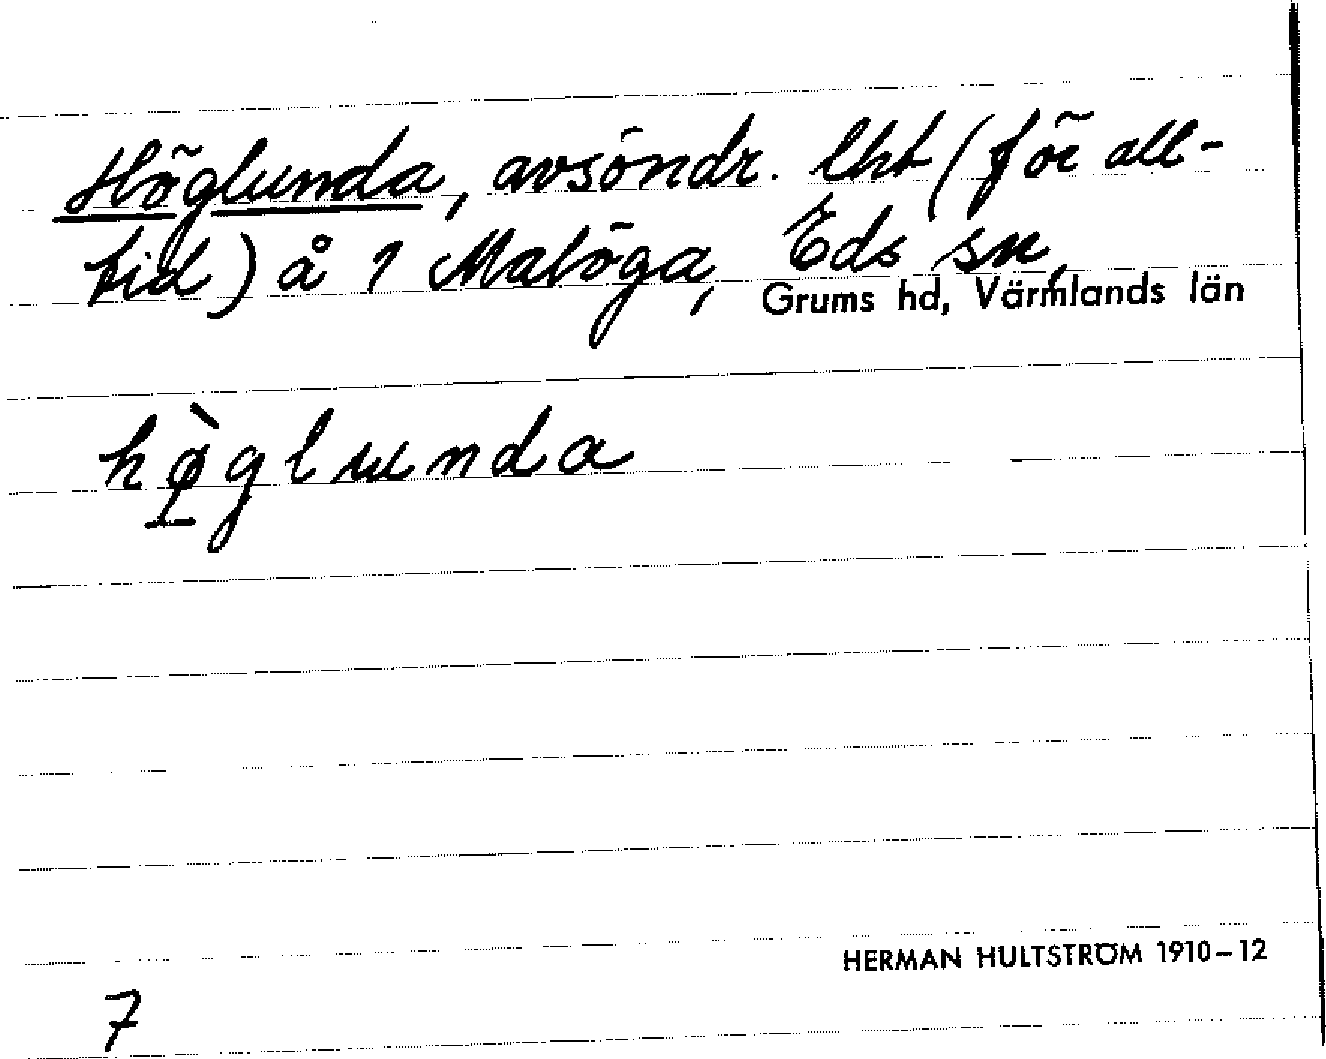 Höglunda, avsöndr. lht (för all-
tid) å 1 Malöga, Eds sn,
Grums hd, Värmlands län
hø̀glunda
HERMAN HULTSTRÖM 1910-12
7